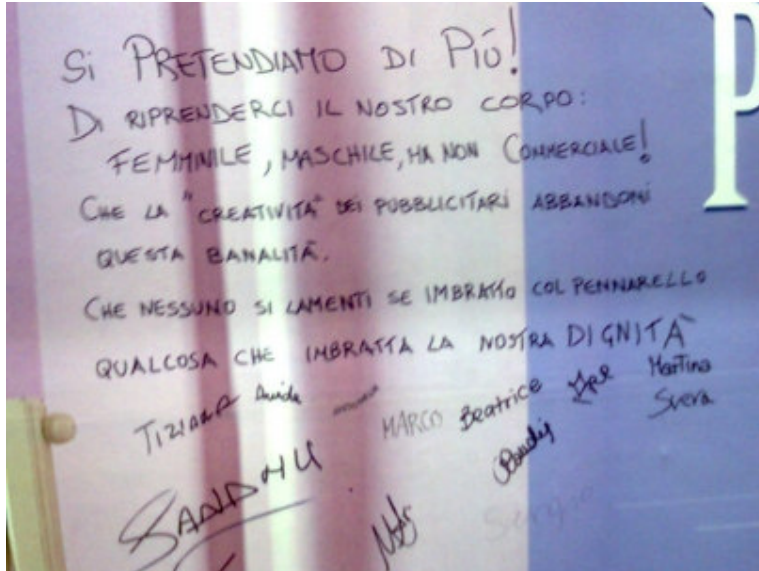 Si PRETENDIAMO DI PIÙ!
DI RIPRENDERCI IL NOSTRO CORPO:
FEMMINILE, MASCHILE, MA NON COMMERCIALE!
CHE LA "CREATIVITÀ" DEI PUBBLICITARI ABBANDONI
QUESTA BANALITÀ.
CHE NESSUNO SI LAMENTI SE IMBRATTO COL PENNARELLO
QUALCOSA CHE IMBRATTA LA NOSTRA DIGNITÀ
TIZIANA MARCO Beatrice Martina
Svera
SANDHU
Sergio
P